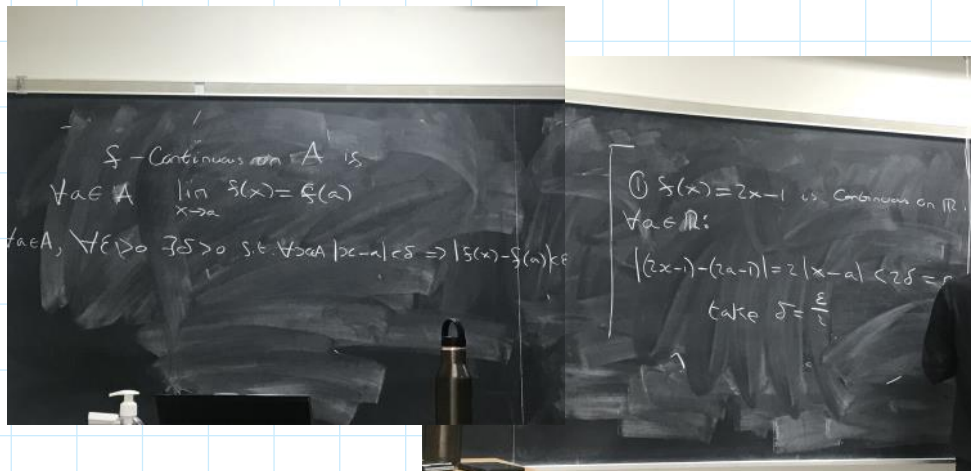 f - Continuous on A is
∀a∈A lim f(x) = f(a)
x→a
∀a∈A, ∀ε>0 ∃δ>0 s.t. ∀x∈A |x-a|<δ ⇒ |f(x)-f(a)|<ε
① f(x)=2x-1 is Continuous on ℝ.
∀a∈ℝ:
|(2x-1)-(2a-1)|=2|x-a|<2δ=
take δ=ε/2